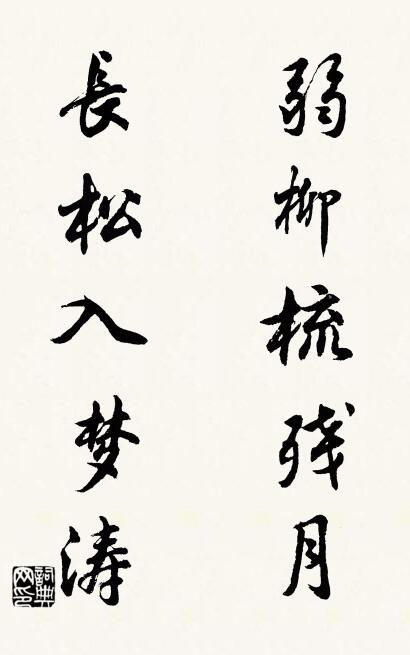 弱柳梳残月
長松入梦涛
詞典网印